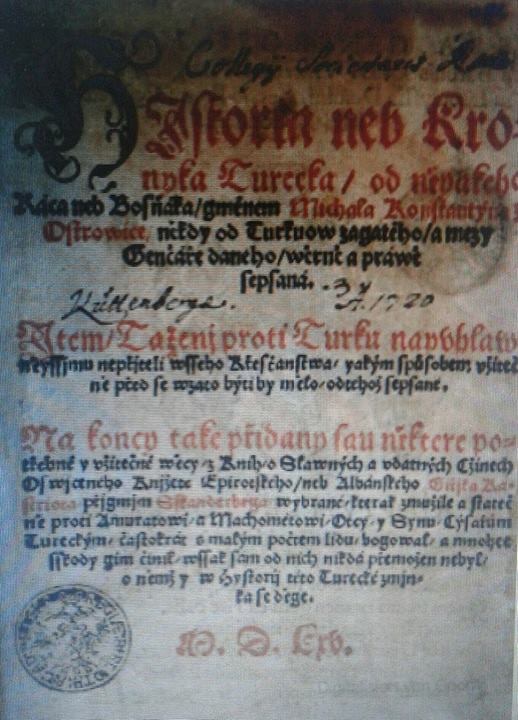 Collegij Societatis
HIstoria neb Kro-
nyka Turecka / od
Ráca neb Bosňáka/gménem Michala Konstantyna
Ostrowice, někdy od Turkuow zagatého/a mezy
Genčáře daného/wěrně a práwě
sepsaná.
Kuttenbergae. A. 1720
Item/Taženj proti Turku
neyssjmu nepřjteli wsseho Křesťanstwa/ yakým spůsobem
ně před se wzato býti by mělo/ sepsané.
Na koncy také přidany sau některe po-
třebné y vžitečné wěcy/z Knih/o Sławných a vdatných Cžinech
Oswjceného Knjžete Epirotského/neb Albánského
přjgmjm Skanderbega wybrané/kterak zmužile a stateč
ně proti Amuratowi/a Machometowi/Otcy y Synu/Cýsařům
Tureckým/ částokrát s malým počtem lidu/ bogowal/ a mnohee
sskody gim činil/ wssak sam od nich nikdá přemožen nebyl/
o němž y w Hystorij této Turecké zmjn-
ka se děge.
M. D. Lxv.